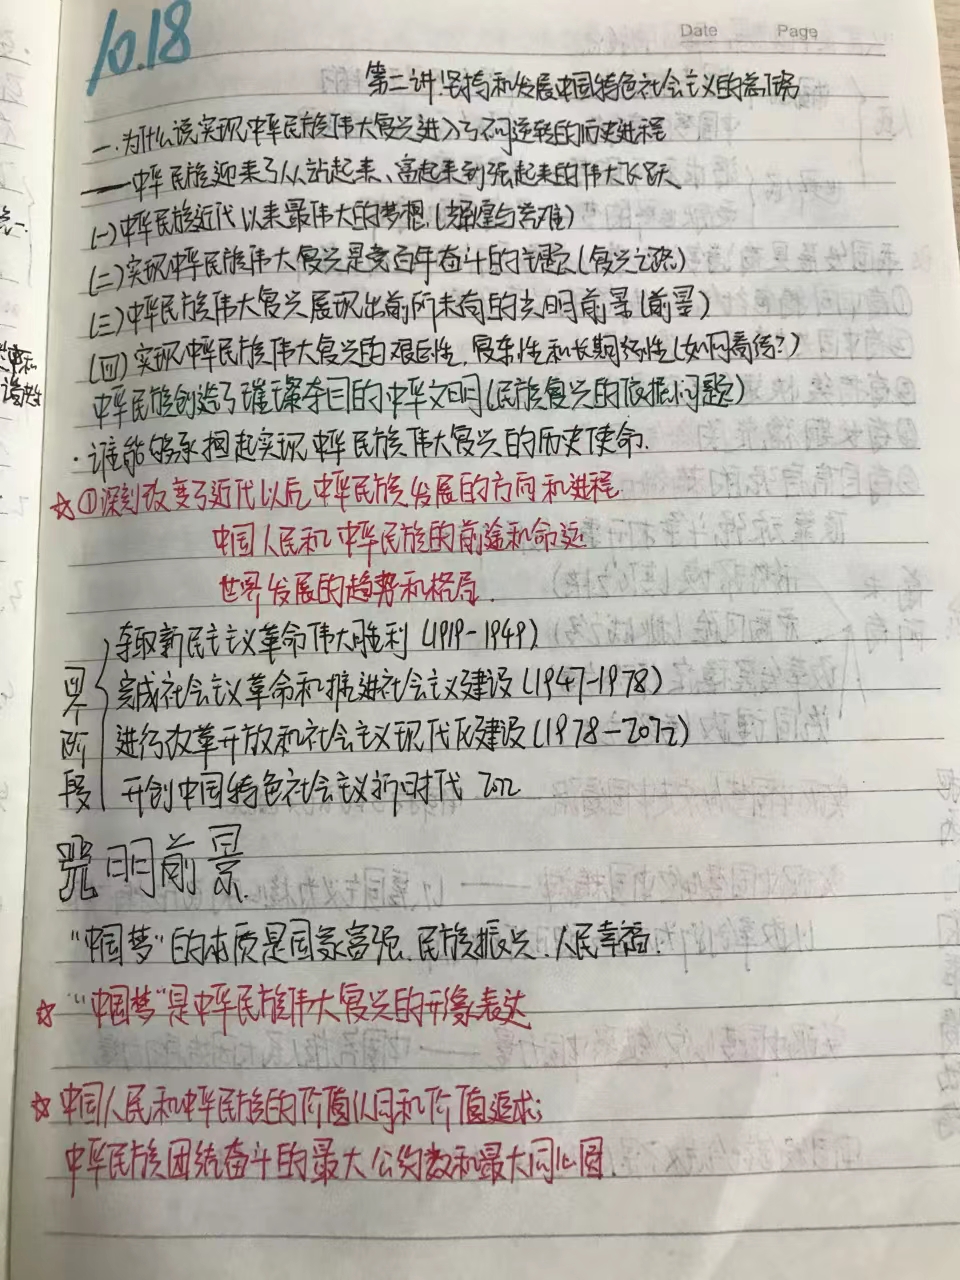 10.18
Date Page
第二讲:坚持和发展中国特色社会主义的总任务
一.为什么说实现中华民族伟大复兴进入了不可逆转的历史进程
——中华民族迎来了从站起来、富起来到强起来的伟大飞跃
(一)中华民族近代以来最伟大的梦想.(辉煌与苦难)
(二)实现中华民族伟大复兴是党百年奋斗的主题(复兴之路)
(三)中华民族伟大复兴展现出前所未有的光明前景(前景)
(四)实现中华民族伟大复兴的艰巨性,复杂性和长期性(如何看待?)
中华民族创造了璀璨夺目的中华文明(民族复兴的依据问题)
·谁能够承担起实现中华民族伟大复兴的历史使命.
☆①深刻改变了近代以后中华民族发展的方向和进程
中国人民和中华民族的前途和命运
世界发展的趋势和格局.
四个阶段
夺取新民主主义革命伟大胜利(1919-1949)
完成社会主义革命和推进社会主义建设(1947-1978)
进行改革开放和社会主义现代化建设(1978-2012)
开创中国特色社会主义新时代 2012
光明前景.
"中国梦"的本质是国家富强、民族振兴、人民幸福.
☆"中国梦"是中华民族伟大复兴的形象表达
☆中国人民和中华民族的价值认同和价值追求;
中华民族团结奋斗的最大公约数和最大同心圆.